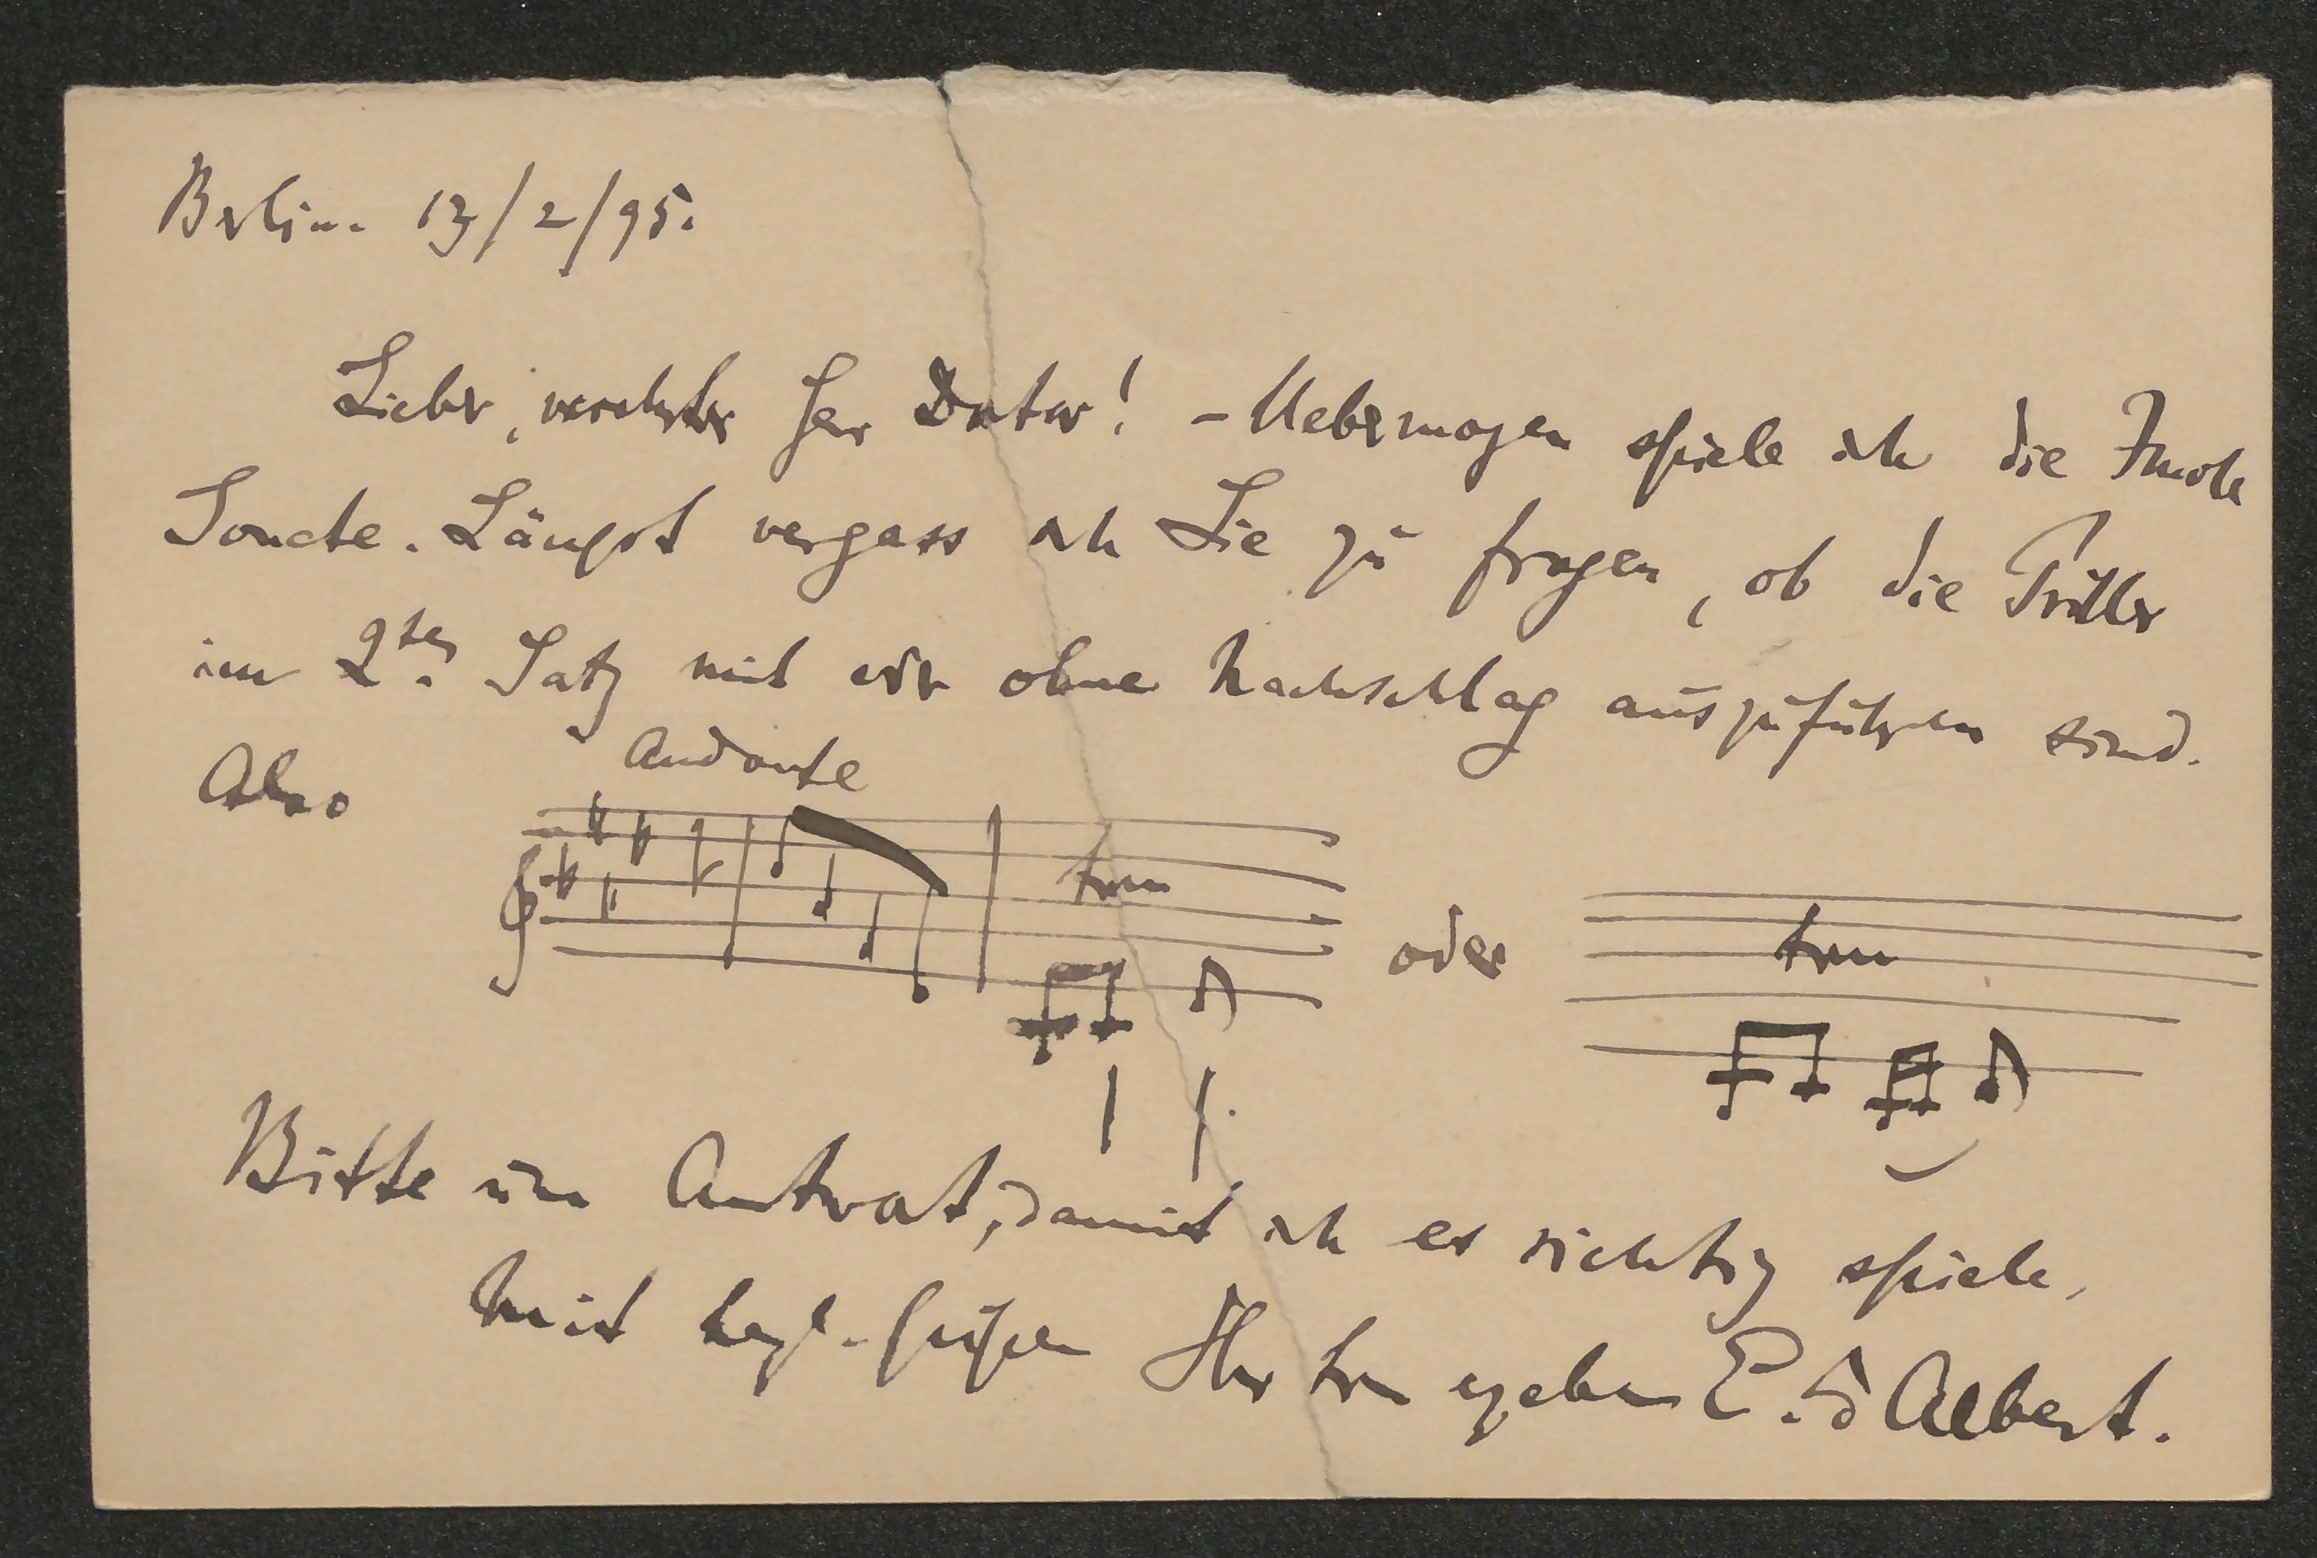 Berlin. 13/2/95.
Lieber, verehrter Herr Doktor! – Uebermorgen spiele ich die Fmoll
Sonate. Längst vergass ich Sie zu fragen, ob die Triller
im 2ten Satz mit oder ohne Nachschlag auszuführen sind.
Andante
Also
trm
oder
trm
Bitte um Antwort, damit ich es richtig spiele.
Mit herzl. Grüßen Ihr treu ergebener E. d'Albert.